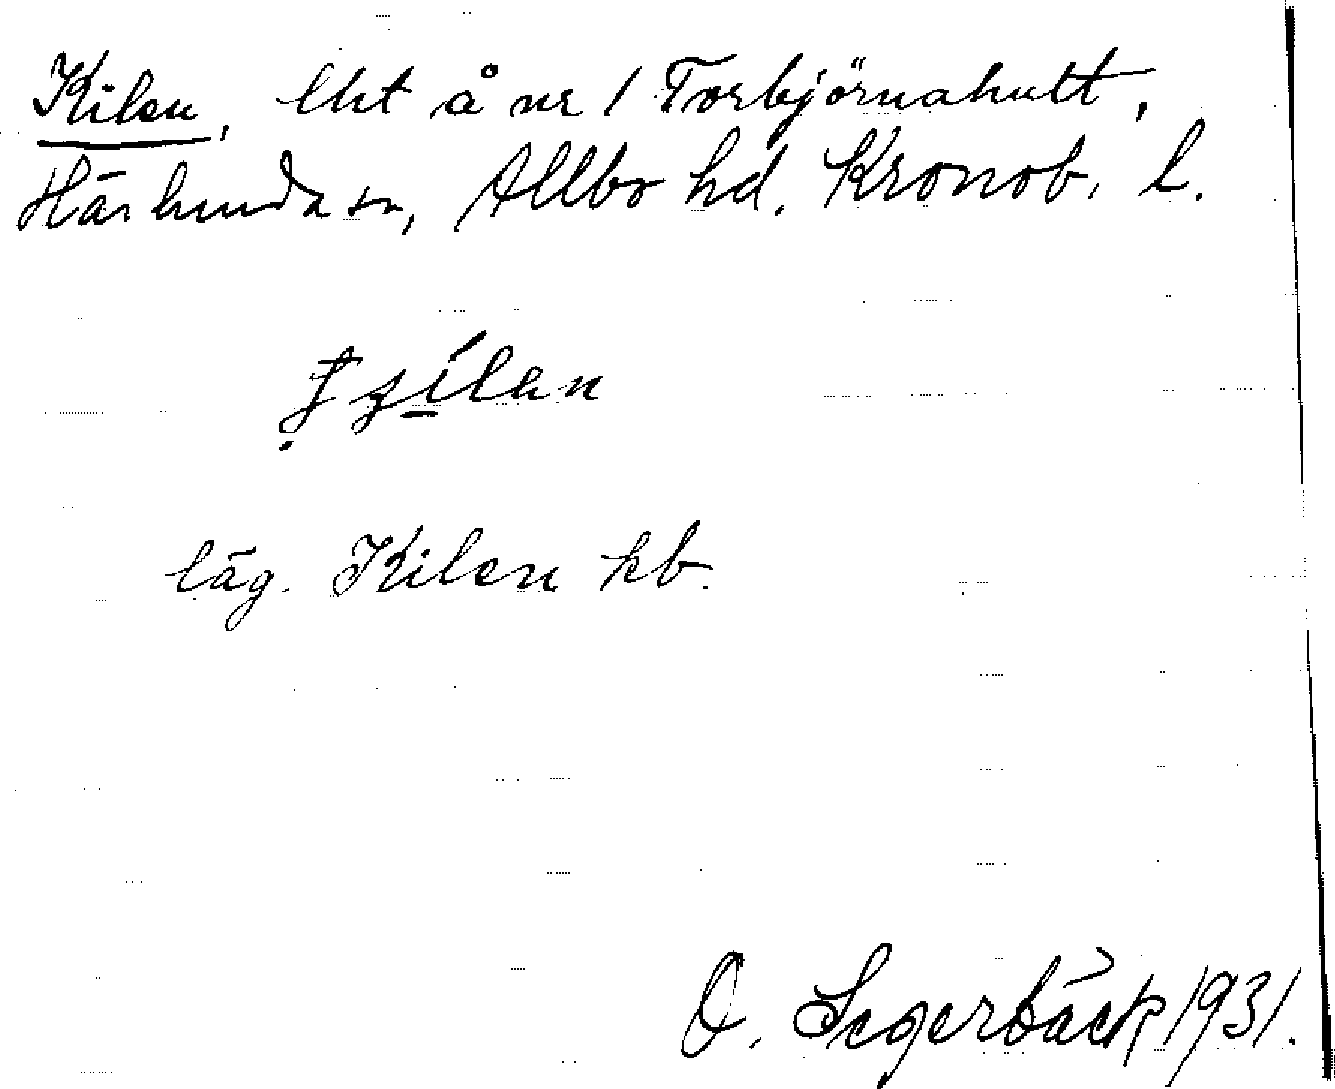 Kilen, lht å nr 1 Torbjörnahult,
Härlunda sn, Allbo hd. Kronob. l.
läg. Kilen kb.
O. Segerbäck 1931.